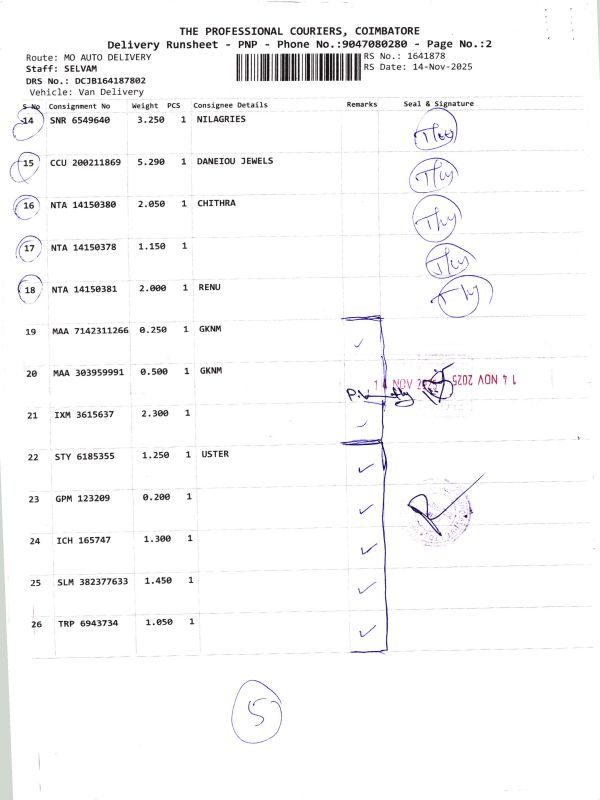 THE PROFESSIONAL COURIERS, COIMBATORE
Delivery Runsheet - PNP - Phone No.:9047080280 - Page No.:2
Route: MO AUTO DELIVERY
RS No.: 1641878
Staff: SELVAM
RS Date: 14-Nov-2025
DRS No.: DCJB164187802
Vehicle: Van Delivery
S No Consignment No Weight PCS Consignee Details Remarks Seal & Signature
14 SNR 6549640 3.250 1 NILAGRIES
15 CCU 200211869 5.290 1 DANEIOU JEWELS
16 NTA 14150380 2.050 1 CHITHRA
17 NTA 14150378 1.150 1
18 NTA 14150381 2.000 1 RENU
19 MAA 7142311266 0.250 1 GKNM
20 MAA 303959991 0.500 1 GKNM
14 NOV 2025 14 NOV 2025
21 IXM 3615637 2.300 1
22 STY 6185355 1.250 1 USTER
23 GPM 123209 0.200 1
24 ICH 165747 1.300 1
25 SLM 382377633 1.450 1
26 TRP 6943734 1.050 1
5